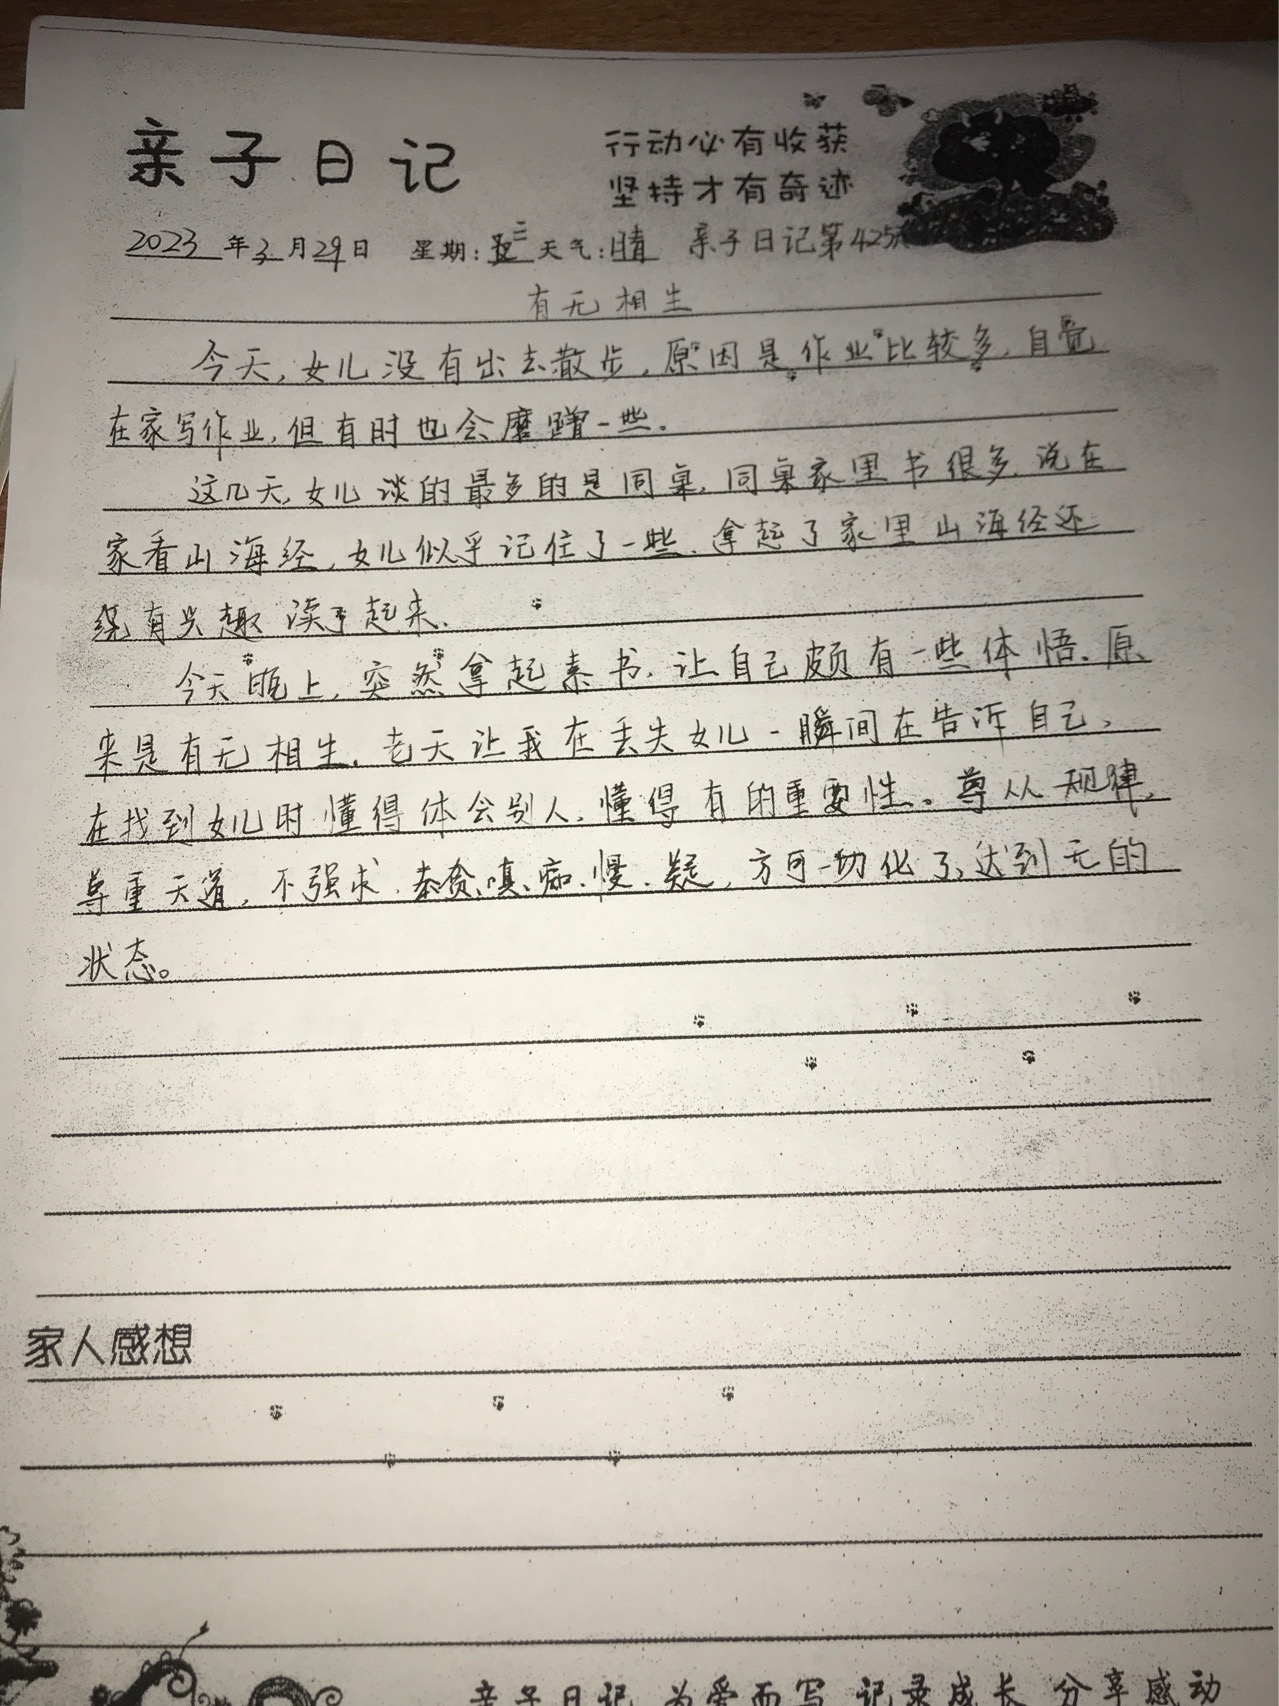 亲子日记
行动必有收获
坚持才有奇迹
2023年3月29日 星期:三 天气:晴 亲子日记第425
有无相生
今天,女儿没有出去散步,原因是作业比较多,自觉
在家写作业,但有时也会磨蹭一些.
这几天,女儿谈的最多的是同桌,同桌家里书很多,说在
家看山海经,女儿似乎记住了一些,拿起了家里山海经还
有兴趣读了起来.
今天晚上,突然拿起素书,让自己颇有一些体悟.原
来是有无相生.老天让我在丢失女儿一瞬间在告诉自己,
在找到女儿时懂得体会别人,懂得有的重要性。尊从规律,
尊重天道,不强求.贪、嗔、痴、慢、疑,方可一切化了,达到无的
状态。
家人感想
亲子日记 为爱而写 记录成长 分享感动